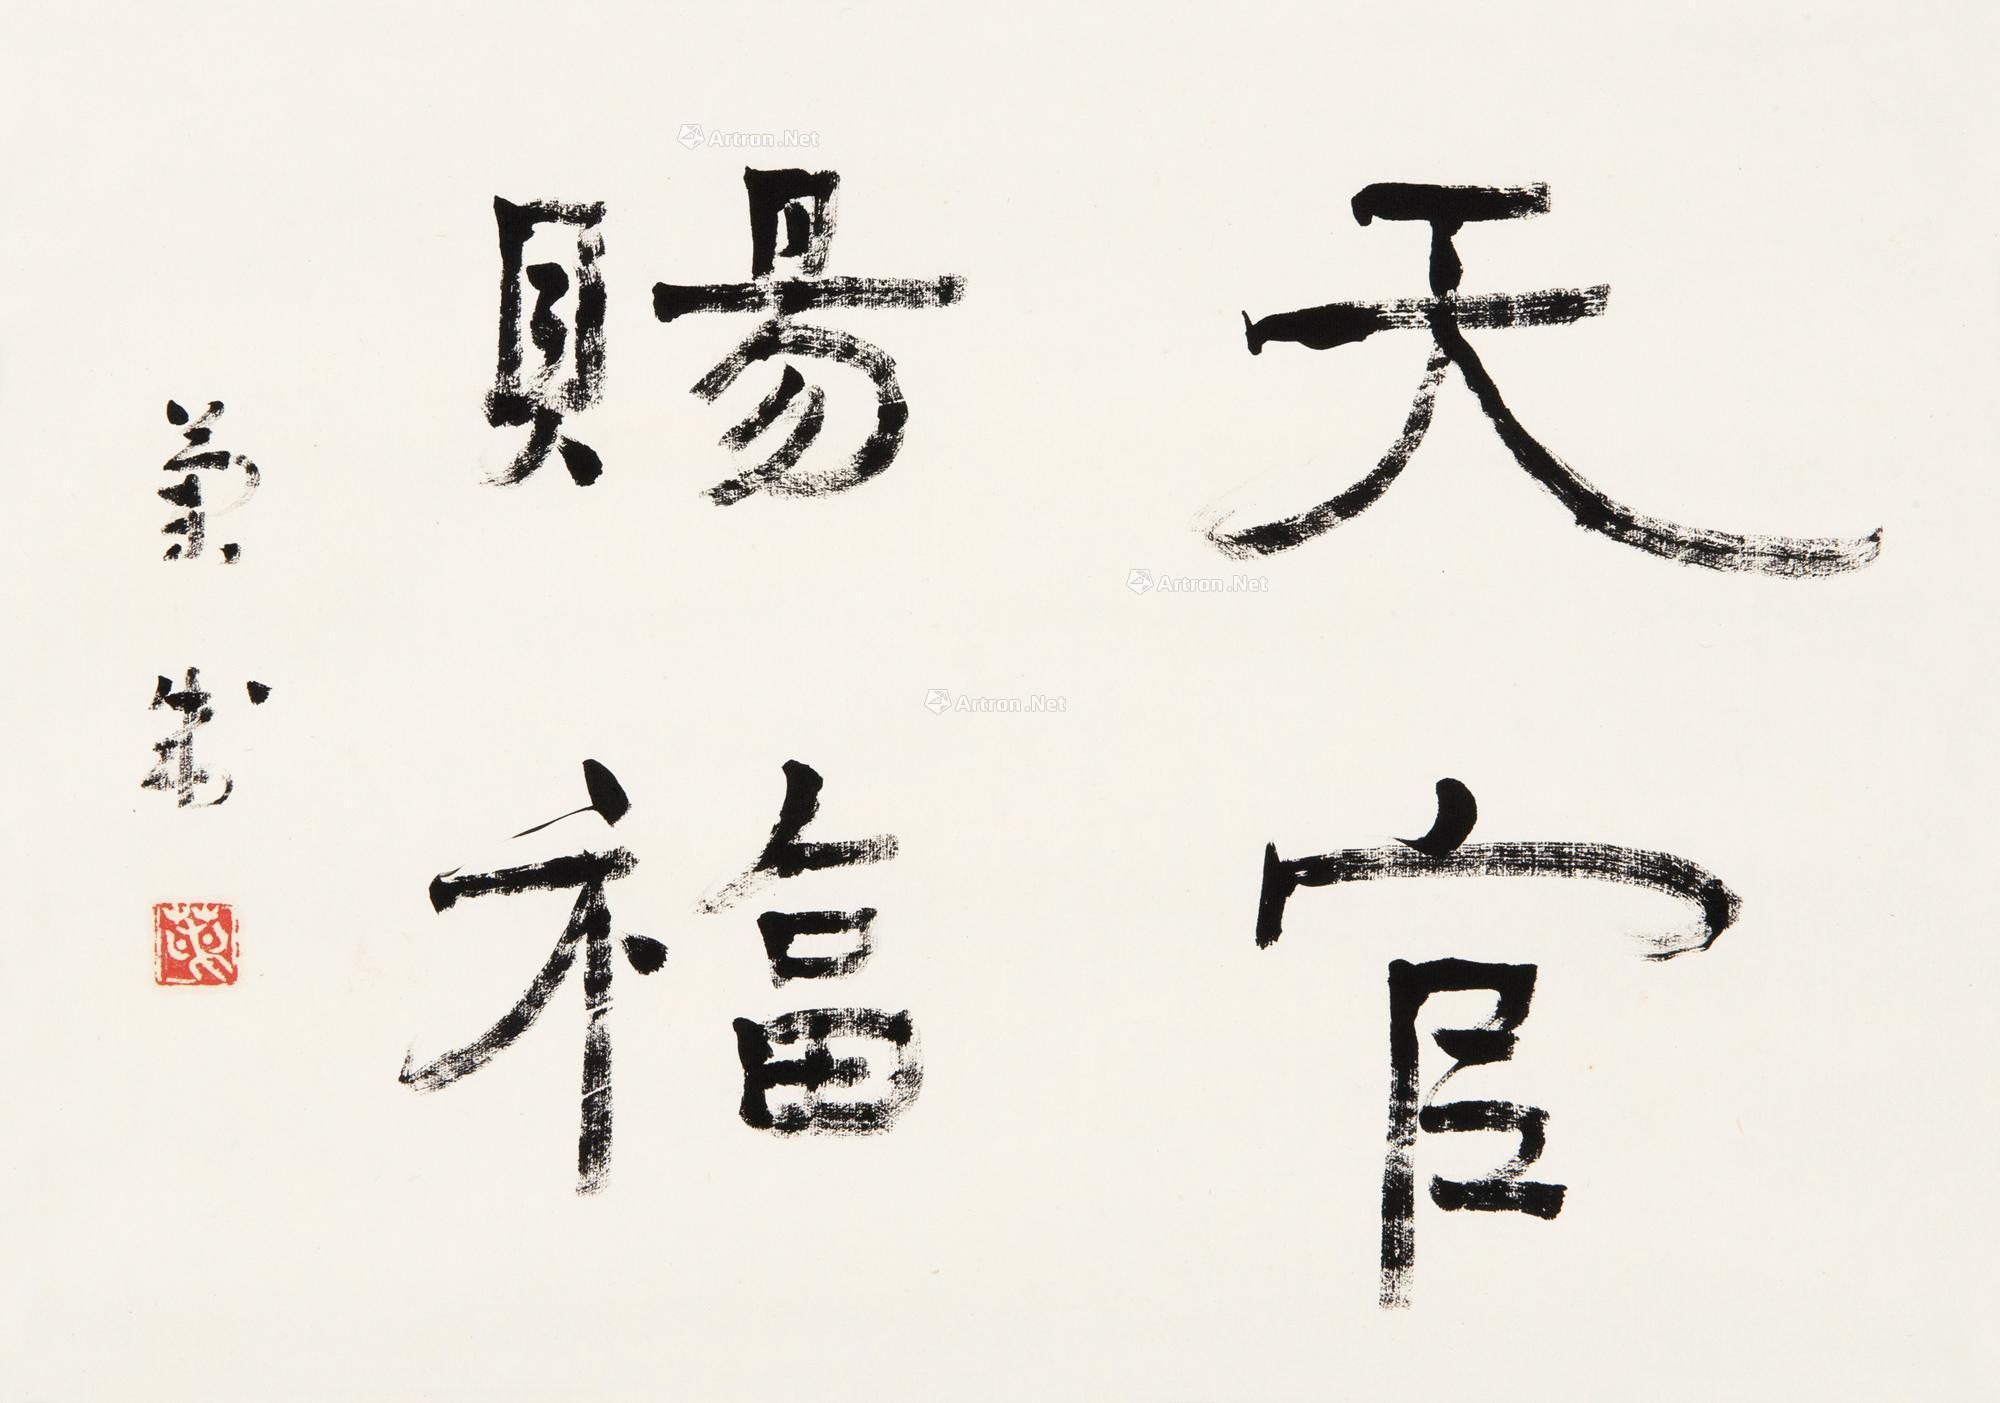 天官
賜福
Artron.Net
Artron.Net
Artron.Net